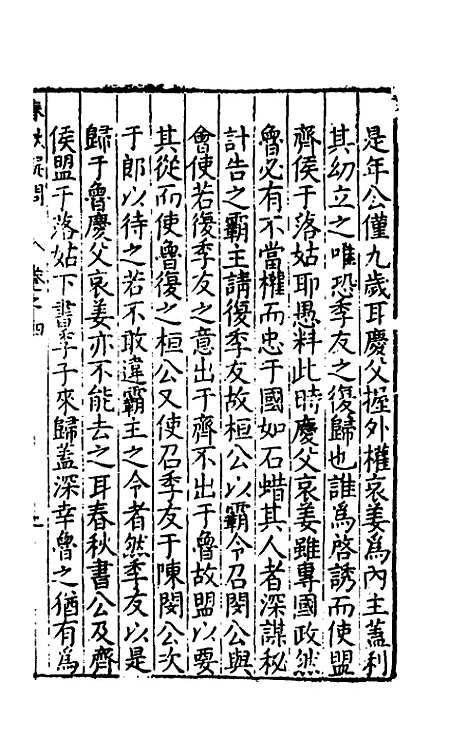 是年公僅九歲耳慶父握外權哀姜爲內主蓋利
其幼立之唯恐季友之復歸也誰爲啓誘而使盟
齊侯于落姑耶愚料此時慶父哀姜雖專國政然
魯必有不當權而忠于國如石蜡其人者深謀秘
計告之霸主請復季友故桓公以霸令召閔公與
會使若復季友之意出于齊不出于魯故盟以要
其從而使魯復之桓公又使召季友于陳閔公次
于郎以待之若不敢違霸主之令者然季友以是
歸于魯慶父哀姜亦不能去之耳春秋書公及齊
侯盟于落姑下書季子來歸蓋深幸魯之猶有爲
卷之四